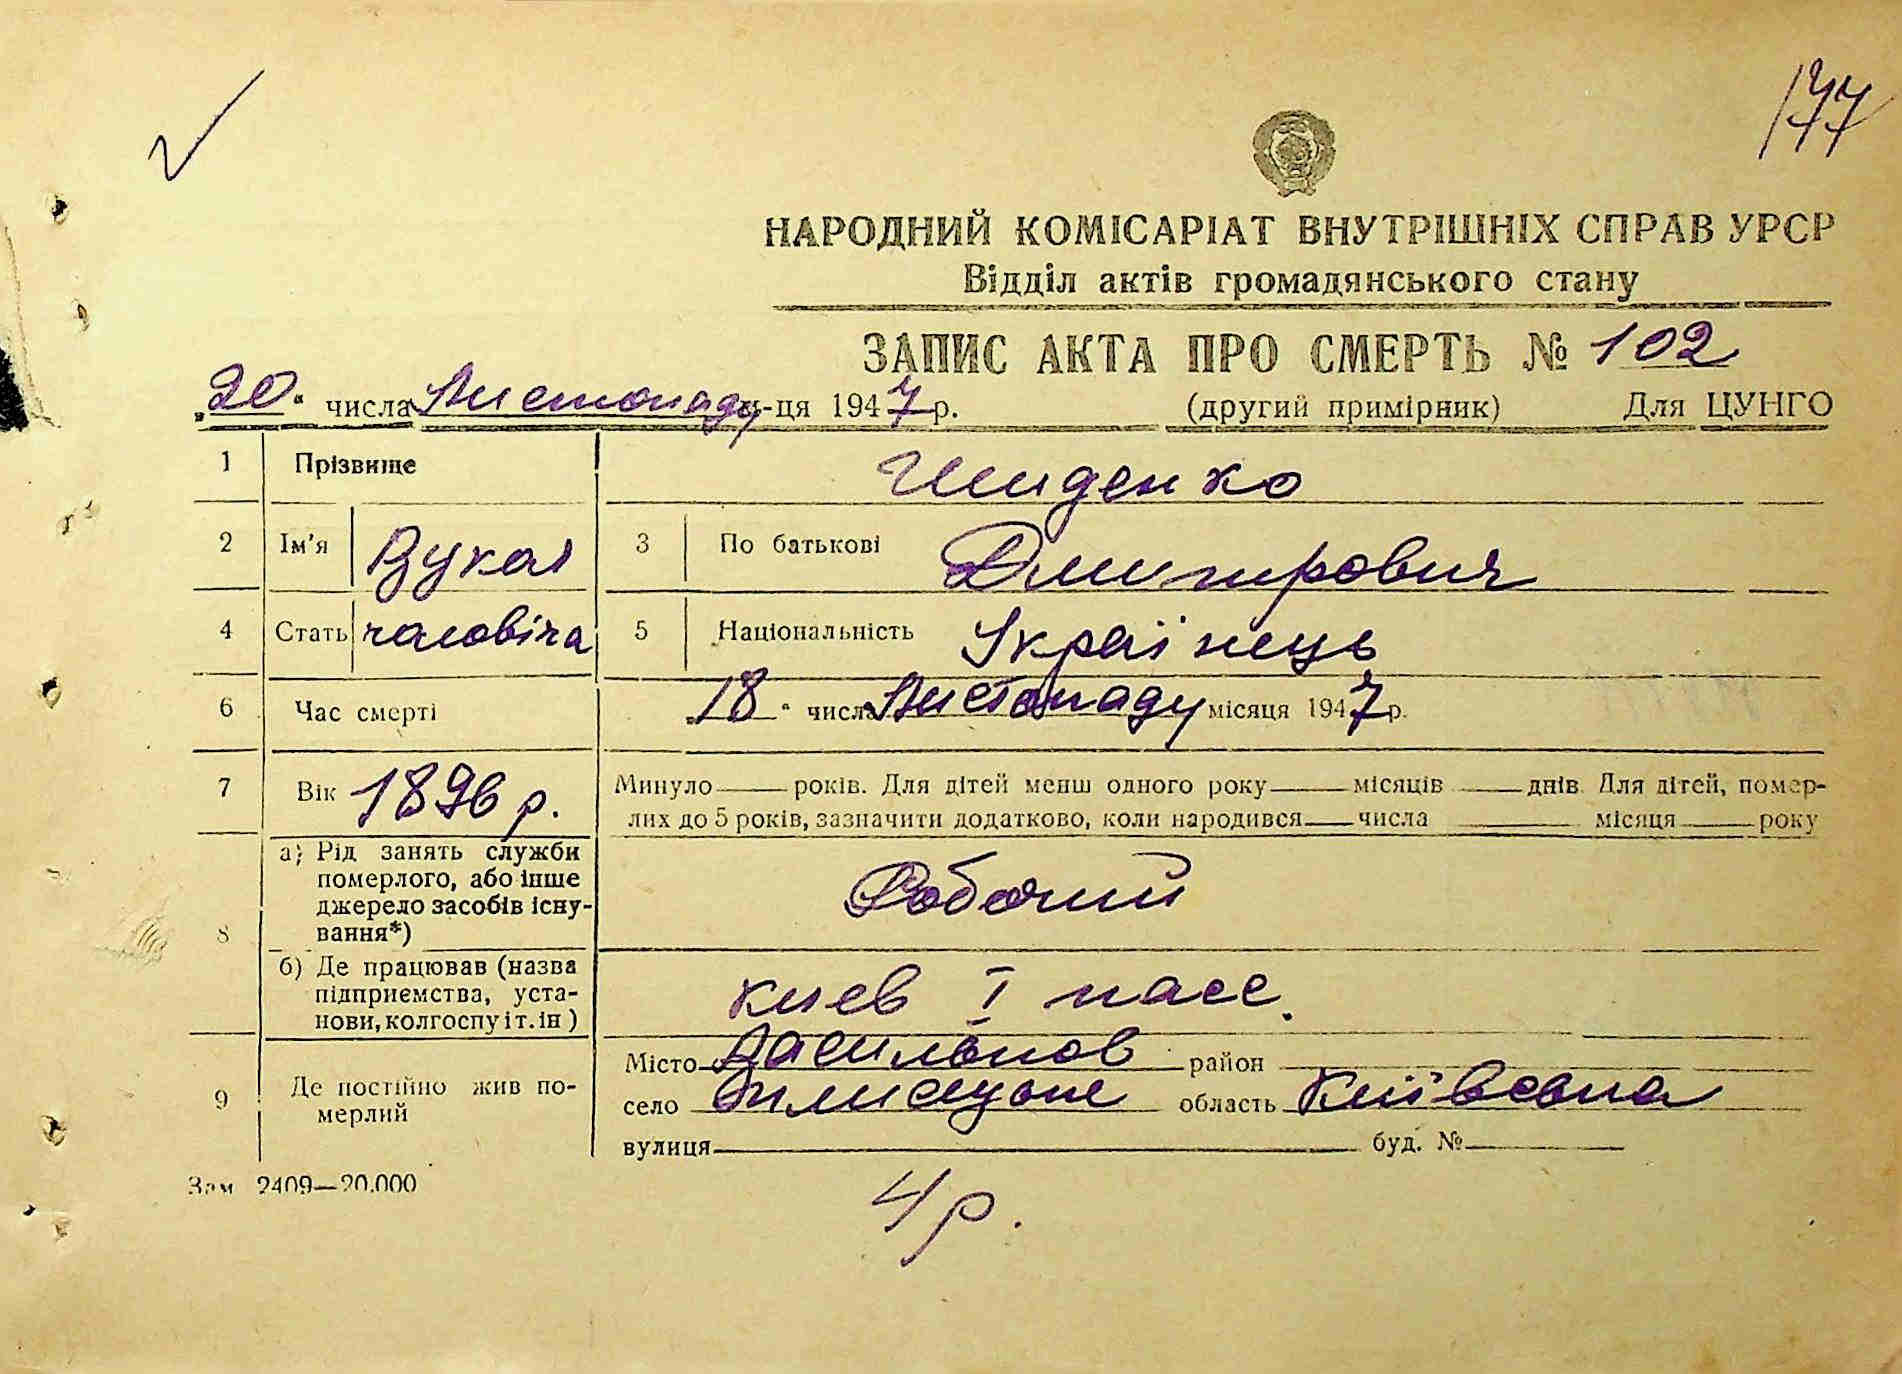 177
НАРОДНИЙ КОМІСАРІАТ ВНУТРІШНІХ СПРАВ УРСР
Відділ актів громадянського стану
ЗАПИС АКТА ПРО СМЕРТЬ № 102
„20“ числа Листопаду м-ця 1947 р. (другий примірник) Для ЦУНГО
1 Прізвище
2 Ім'я Вукол 3 По батькові Дмитрович
4 Стать чоловіча 5 Національність Українець
6 Час смерті „18“ числа Листопаду місяця 1947 р.
7 Вік 1896 р. Минуло — років. Для дітей менш одного року — місяців — днів. Для дітей, помер-
лих до 5 років, зазначити додатково, коли народився — числа — місяця — року
8 а) Рід занять служби
померлого, або інше
джерело засобів існу-
вання*)
Рабочий
б) Де працював (назва
підприємства, уста-
нови, колгоспу і т. ін)
Киев I пасс.
9 Де постійно жив по-
мерлий
Місто Васильков район
село область Київська
вулиця буд. №
Зам 2409—20.000
4 р.